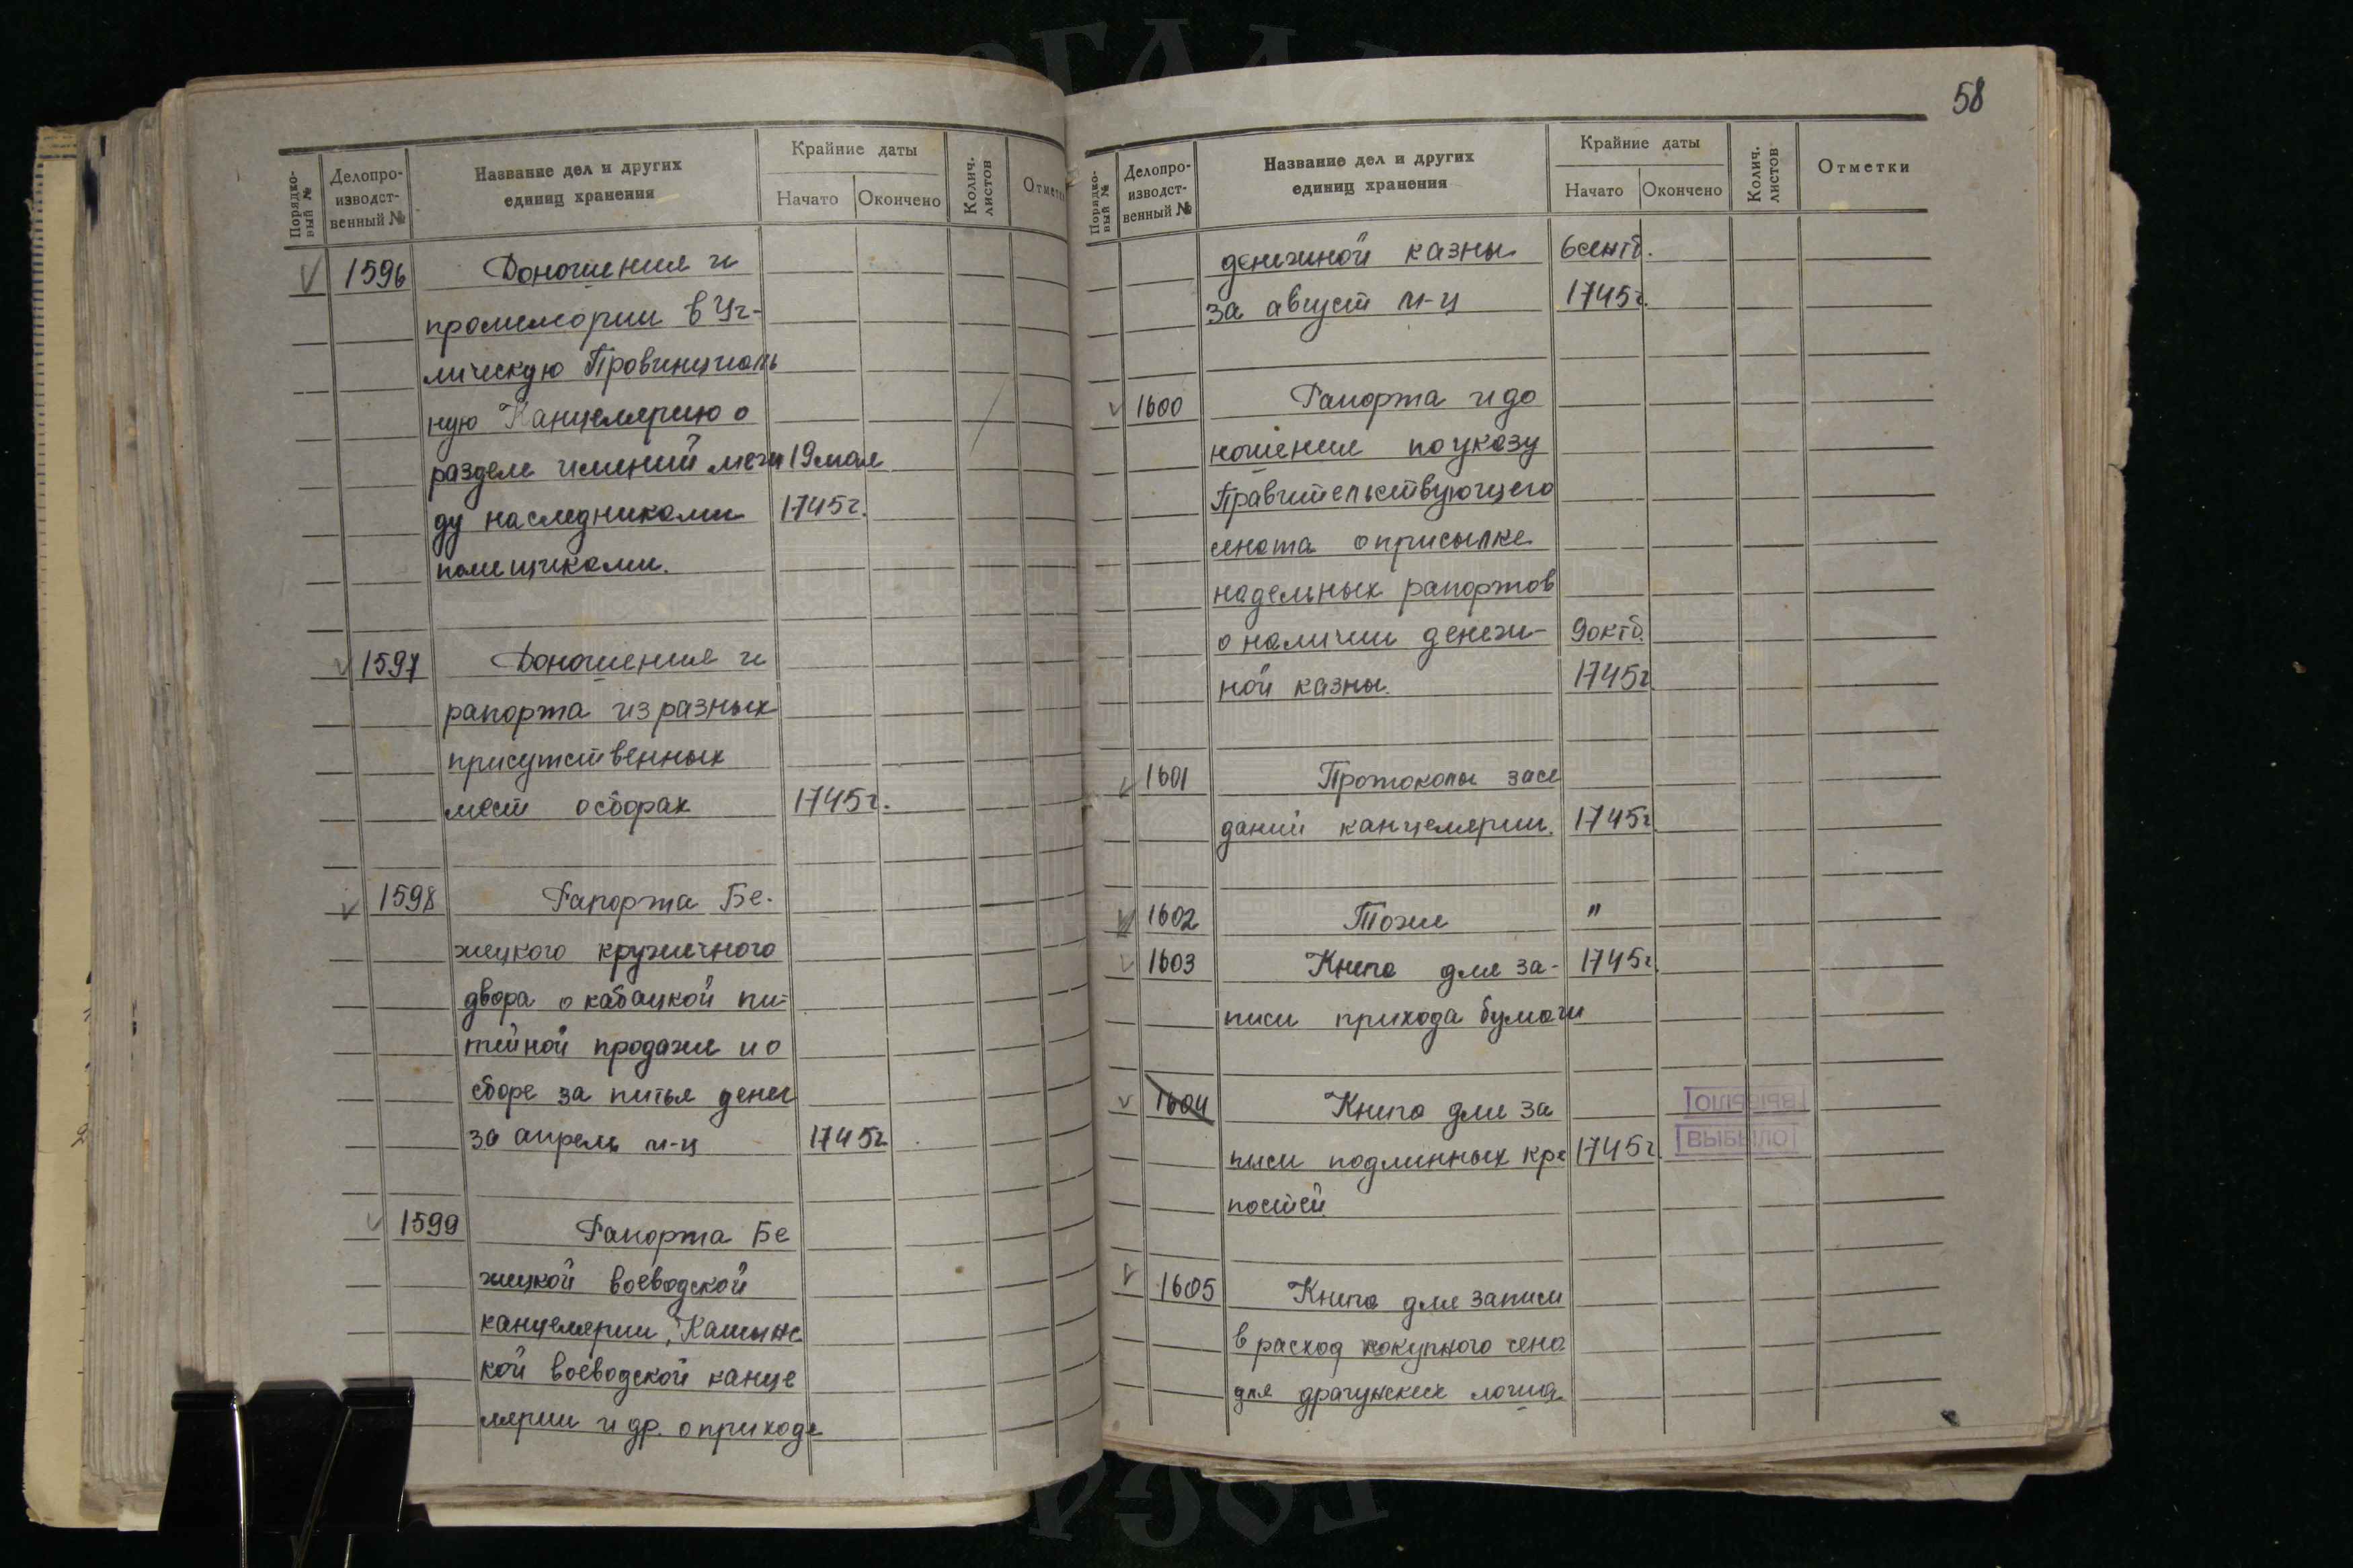 Порядко-
вый №
Делопро-
изводст-
венный №
Название дел и других
единиц хранения
Крайние даты
Начато
Окончено
Колич.
листов
Отметк
1596 Доношения и
промемории в Уг-
личскую Провинциаль
ную Канцелярию о
разделе имений меж 19 мая
ду наследниками 1745 г.
помещиками.
1597 Доношения и
рапорта из разных
присутственных
мест о сборах 1745 г.
1598 Рапорта Бе-
жецкого кружечного
двора о кабацкой пи-
тейной продаже и о
сборе за питья денег
за апрель м-ц 1745 г
1599 Рапорта Бе
жецкой воеводской
канцелярии, Кашинс
кой воеводской канце
лярии и др. о приходе
58
Порядко-
вый №
Делопро-
изводст-
венный №
Название дел и других
единиц хранения
Крайние даты
Начато
Окончено
Колич.
листов
Отметки
денежной казны 6 сентб.
за август м-ц 1745 г.
1600 Рапорта и до
ношения по указу
Правительствующего
сената о присылке
надельных рапортов
о наличии денеж- 9 октб.
ной казны. 1745 г.
1601 Протоколы засе
даний канцелярии. 1745 г.
1602 Тоже "
1603 Книга для за- 1745 г.
писи прихода бумаги
1604 Книга для за
писи подлинных кре 1745 г.
ВЫБЫЛО
постей
1605 Книга для записи
в расход покупного сена
для драгунских лошад